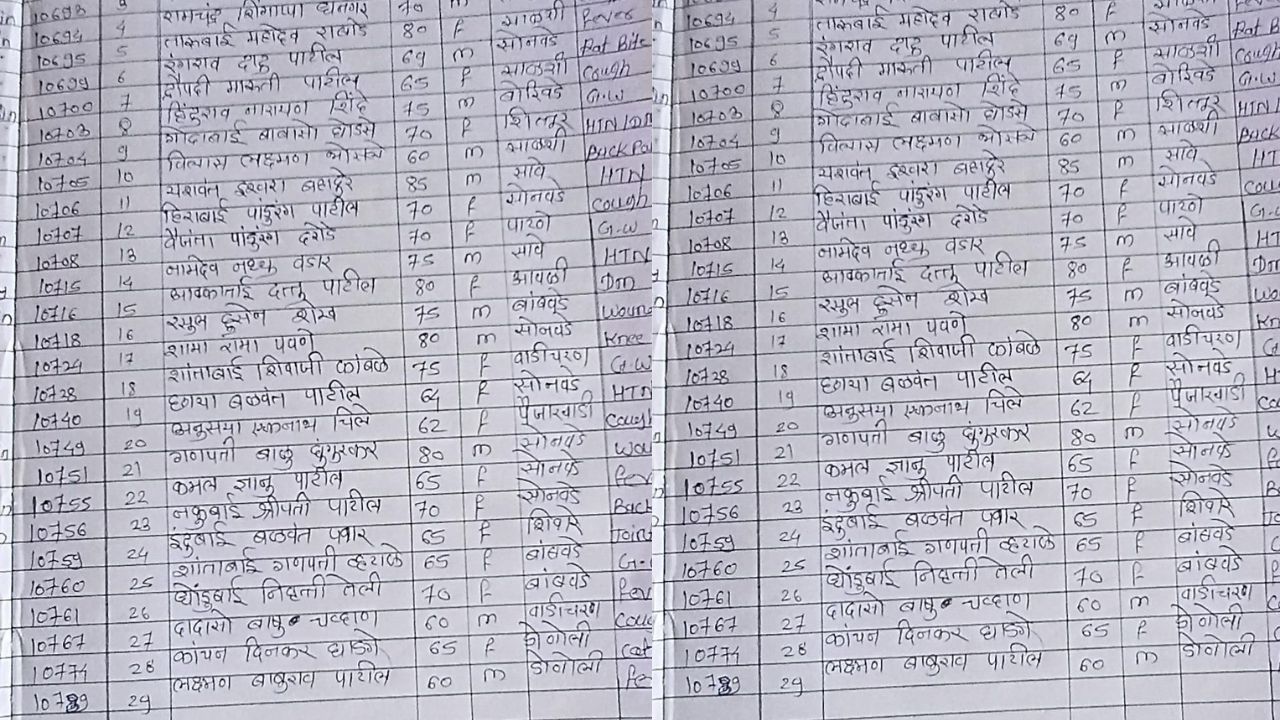 10693 3 रामचंद्र शिंगाप्पा धनगर 70 m
10694 4 ताकबाई महादेव राबाडे 80 f साळशी Fever
10695 5 रंगराव दादू पाटील 69 m सोनवडे Rat Bite
10699 6 द्रौपदी मारुती पाटील 65 f साळशी Cough
10700 7 हिंदुराव नारायण शिंदे 75 m बोरिवडे G.W
10703 8 गोदाबाई बाबासो घोडसे 70 f शित्तूर HTN/DM
10704 9 विलास लक्ष्मण 60 m साळशी Back Pa
10705 10 यशवंत ईश्वरा बहादुरे 85 m सावे HTN
10706 11 हिराबाई पांडुरंग पाटील 70 f सोनवडे Cough
10707 12 वैजंता पांडुरंग दरोडे 70 f पारखे G.W
10708 13 नामदेव नथ्थू वडार 75 m सावे HTN
10715 14 आक्काताई दत्तू पाटील 80 f आवळी Dm
10716 15 रसुल हुसेन शेख 75 m बांबवडे Woun
10718 16 शामा रामा पवने 80 m सोनवडे Knee
10724 17 शांताबाई शिवाजी कांबळे 75 f वाडीचरण G.W
10728 18 छाया बळवंत पाटील 64 f सोनवडे HTN
10740 19 अनुसया एकनाथ चिले 62 f पैजारवाडी Cough
10749 20 गणपती बाळू घुंगुरकर 80 m सोनवडे Wou
10751 21 कमल ज्ञानू पाटील 65 f सोनवडे Fev
10755 22 नकुबाई श्रीपती पाटील 70 f सोनवडे Back
10756 23 इंदुबाई बळवंत पवार 65 f शिंपे Joint
10759 24 शांताबाई गणपती व्हटाळे 65 f बांबवडे G.
10760 25 धोंडुबाई निवृत्ती तेली 70 f बांबवडे Fev
10761 26 दादासो बापु चव्हाण 60 m वाडीचरण Cou
10767 27 कांचन दिनकर घाडगे 65 f डोणोली
10774 28 लक्ष्मण बाबुराव पाटील 60 m डोणोली Fe
10789 29
10694 4 ताकबाई महादेव राबाडे 80 f
10695 5 रंगराव दादू पाटील 69 m सोनवडे Rat B
10699 6 द्रौपदी मारुती पाटील 65 f साळशी Cough
10700 7 हिंदुराव नारायण शिंदे 75 m बोरिवडे G.W
10703 8 गोदाबाई बाबासो घोडसे 70 f शित्तूर HTN
10704 9 विलास लक्ष्मण 60 m साळशी Back
10705 10 यशवंत ईश्वरा बहादुरे 85 m सावे HT
10706 11 हिराबाई पांडुरंग पाटील 70 f सोनवडे Cou
10707 12 वैजंता पांडुरंग दरोडे 70 f पारखे G.
10708 13 नामदेव नथ्थू वडार 75 m सावे HT
10715 14 आक्काताई दत्तू पाटील 80 f आवळी Dm
10716 15 रसुल हुसेन शेख 75 m बांबवडे Wo
10718 16 शामा रामा पवने 80 m सोनवडे Kn
10724 17 शांताबाई शिवाजी कांबळे 75 f वाडीचरण G
10728 18 छाया बळवंत पाटील 64 f सोनवडे H
10740 19 अनुसया एकनाथ चिले 62 f पैजारवाडी Co
10749 20 गणपती बाळू घुंगुरकर 80 m सोनवडे
10751 21 कमल ज्ञानू पाटील 65 f सोनवडे
10755 22 नकुबाई श्रीपती पाटील 70 f सोनवडे
10756 23 इंदुबाई बळवंत पवार 65 f शिंपे
10759 24 शांताबाई गणपती व्हटाळे 65 f बांबवडे
10760 25 धोंडुबाई निवृत्ती तेली 70 f बांबवडे
10761 26 दादासो बापु चव्हाण 60 m वाडीचरण
10767 27 कांचन दिनकर घाडगे 65 f डोणोली
10774 28 लक्ष्मण बाबुराव पाटील 60 m डोणोली
10789 29